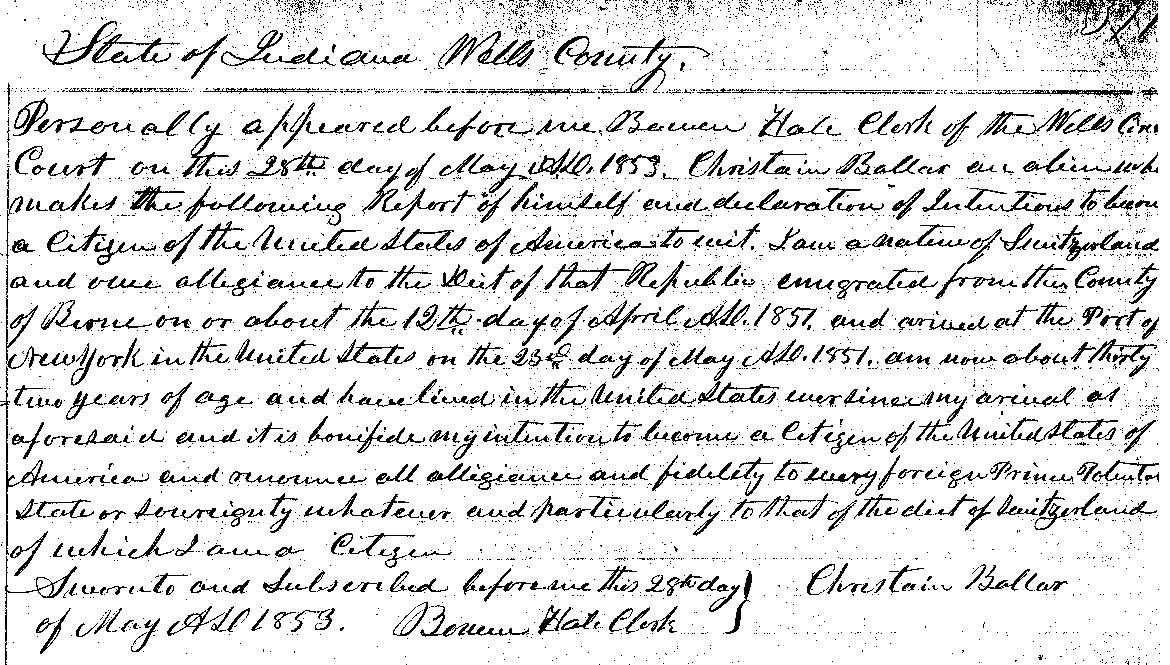 State of Indiana Wells County.
Personally appeared before me Bowen Hale Clerk of the Wells
Court on this 28th day of May A.D. 1853. Christain Ballar an alien who
makes the following Report of himself and declaration of Intentions to
a Citizen of the United States of America to wit. I am a native of Switzerland
and owe allegiance to the Diet of that Republic emigrated from the County
of Berne on or about the 12th day of April A.D. 1851. and arived at the Port of
New York in the United States on the 23rd day of May A.D. 1851. am now about thirty
two years of age and have lived in the United States ever since my arival as
aforesaid and it is bonifide my intention to become a Citizen of the United States of
America and renounce all allegiance and fidelity to every foreign Prince
State or Sovreignty whatever and particularly to that of the diet of Switzerland
of which I am a Citizen
Sworn to and Subscribed before me this 28th day } Christain Ballar
of May A.D 1853. Bowen Hale Clerk